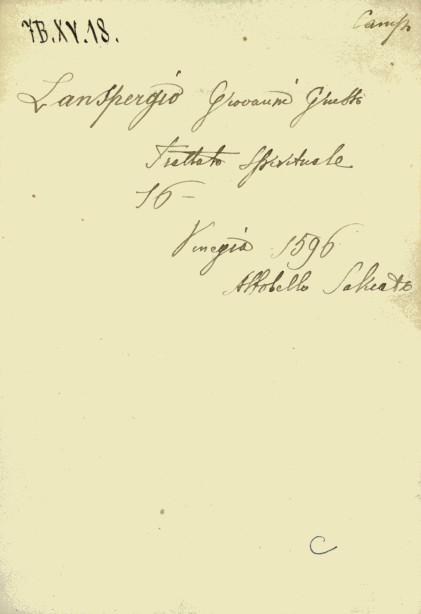 7B.XV.18.
Camp
Lanspergio Giovanni Giusto
Trattato Spirituale
16-
Venegia 1596
Altobello Salicato
C